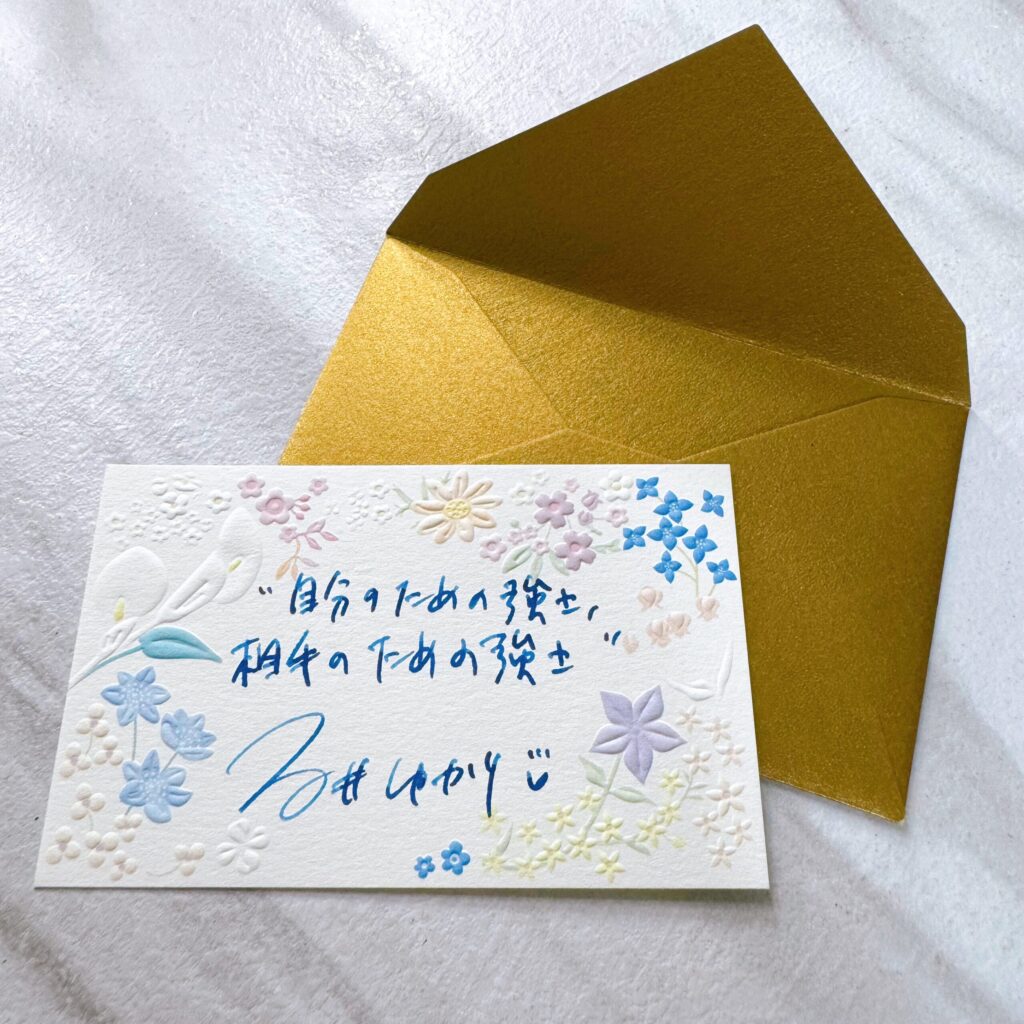 "自分のための強さ,
相手のための強さ"
石井ゆかり